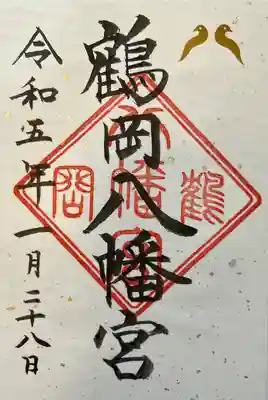 鶴岡八幡宮
令和五年一月二十八日
鶴
岡
八幡宮